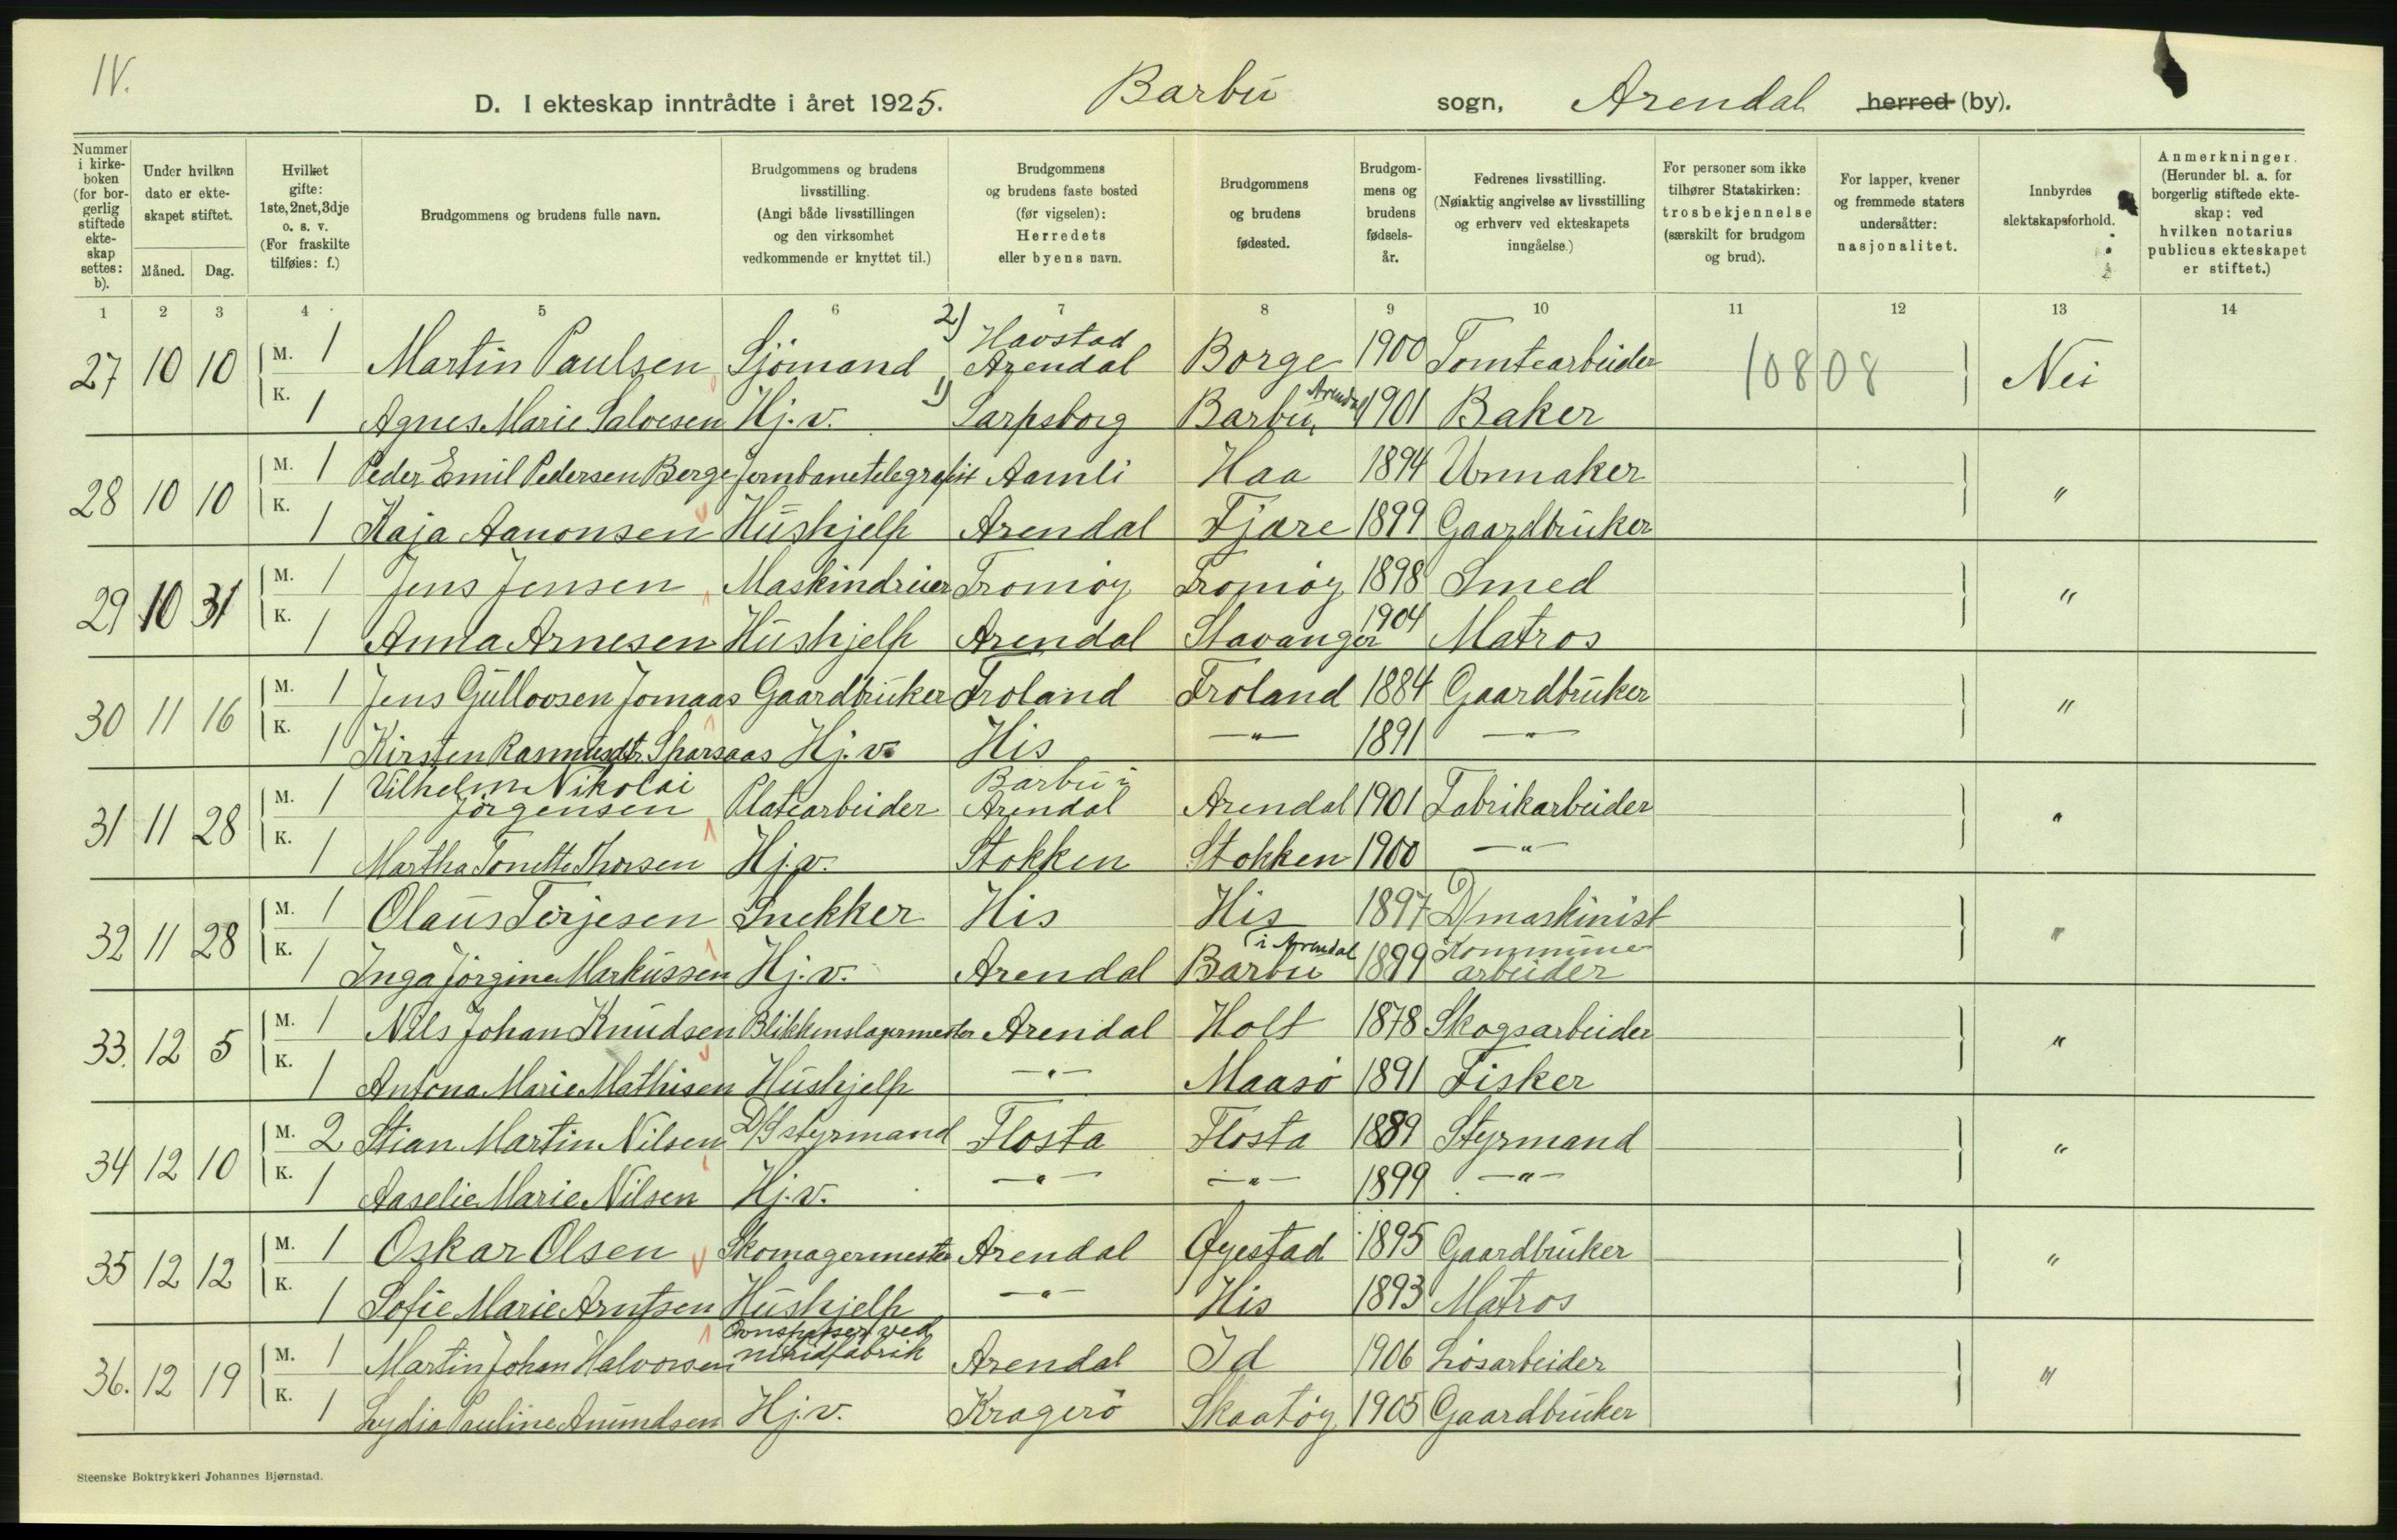 IV.
D. I ekteskap inntrådte i året 1925. Barbu sogn, Arendal herred (by).
Nummer i kirkeboken (for borgerlig stiftede ekteskap settes: b).
Under hvilken dato er ekteskapet stiftet.
Måned. Dag.
Hvilket gifte: 1ste, 2net, 3dje o. s. v. (For fraskilte tilføies: f.)
Brudgommens og brudens fulle navn.
Brudgommens og brudens livsstilling. (Angi både livsstillingen og den virksomhet vedkommende er knyttet til.)
Brudgommens og brudens faste bosted (før vigselen): Herredets eller byens navn.
Brudgommens og brudens fødested.
Brudgommens og brudens fødselsår.
Fedrenes livsstilling. (Nøiaktig angivelse av livsstilling og erhverv ved ekteskapets inngåelse.)
For personer som ikke tilhører Statskirken: trosbekjennelse (særskilt for brudgom og brud).
For lapper, kvener og fremmede staters undersåtter: nasjonalitet.
Innbyrdes slektskapsforhold.
Anmerkninger. (Herunder bl. a. for borgerlig stiftede ekteskap: ved hvilken notarius publicus ekteskapet er stiftet.)
1 2 3 4 5 6 7 8 9 10 11 12 13 14
27 10 10 M. 1 Martin Paulsen Sjömand 2) Havstad Arendal Borge 1900 Tomtearbeider 10808 Nei
K. 1 Agnes Marie Salvesen Hj.v. 1) Sarpsborg Barbu, Arendal 1901 Baker
28 10 10 M. 1 Peder Emil Pedersen Berge Jernbanetelegrafist Aamli Haa 1894 Urmaker "
K. 1 Kaja Aanonsen Hushjelp Arendal Fjære 1899 Gaardbruker
29 10 31 M. 1 Jens Jensen Maskindreier Tromöy Tromöy 1898 Smed "
K. 1 Anna Arnesen Hushjelp Arendal Stavanger 1904 Matros
30 11 16 M. 1 Jens Gullovsen Jomaas Gaardbruker Froland Froland 1884 Gaardbruker "
K. 1 Kirsten Rasmusdtr. Sparsaas Hj.v. His —"— 1891 —"—
31 11 28 M. 1 Vilhelm Nikolai Jörgensen Platearbeider Barbu i Arendal Arendal 1901 Fabrikarbeider "
K. 1 Martha Tonette Thorsen Hj.v. Stokken Stokken 1900 —"—
32 11 28 M. 1 Olaus Terjesen Snekker His His 1897 D/maskinist "
K. 1 Inga Jörgine Markussen Hj.v. Arendal Barbu i Arendal 1899 Kommunearbeider
33. 12 5 M. 1 Nils Johan Knudsen Blikkenslagermester Arendal Holt 1878 Skogsarbeider "
K. 1 Antona Marie Mathisen Hushjelp —"— Maasö 1891 Fisker
34 12 10 M. 2 Stian Martin Nilsen D/S styrmand Flosta Flosta 1889 Styrmand "
K. 1 Aaselie Marie Nilsen Hj.v. —"— —"— 1899 —"—
35 12 12 M. 1 Oskar Olsen Skomagermester Arendal Øyestad 1895 Gaardbruker "
K. 1 Sofie Marie Arntsen Hushjelp —"— His 1893 Matros
36. 12 19 M. 1 Martin Johan Halvorsen Ovnspasser ved nitridfabrik Arendal Id 1906 Lösarbeider "
K. 1 Lydia Pauline Anundsen Hj.v. Kragerö Skaatöy 1905 Gaardbruker
Steenske Boktrykkeri Johannes Bjørnstad.